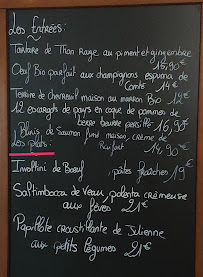 Les Entrées:
Tartare de Thon Rouge au piment et gingembre
15,90€
Oeuf Bio parfait aux champignons espuma de
Comté 14€
Terrine de chevreuil maison au marron Bio 12€
12 escargots de pays en coque de pommes de
terre beurre persillé 16,90€
Blinis de Saumon fumé maison, crème de
Les plats: Raifort 14,90€
Involtini de Bœuf, pâtes fraîches 19€
Saltimbocca de veau, polenta crémeuse
aux fèves 21€
Papillote croustillante de Julienne
aux petits légumes 21€